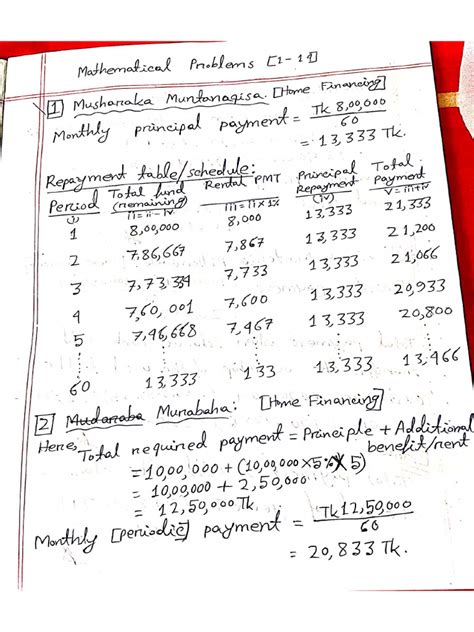 Mathematical Problems [1-19]
1 Musharaka Muntanaqisa. [Home Financing]
Monthly principal payment = Tk 8,00,000 / 60
= 13,333 Tk.
Repayment table/schedule:
Period (i) Total fund (remaining) ii = ii - iv Rental PMT iii = ii x 1% Principal Repayment (iv) Total Payment v = iii+iv
1 8,00,000 8,000 13,333 21,333
2 7,86,667 7,867 13,333 21,200
3 7,73,334 7,733 13,333 21,066
4 7,60,001 7,600 13,333 20,933
5 7,46,668 7,467 13,333 20,800
60 13,333 133 13,333 13,466
2 Mudaraba Murabaha: [Home Financing]
Here, Total required payment = Principle + Additional benefit/rent
= 10,00,000 + (10,00,000 × 5% × 5)
= 10,00,000 + 2,50,000
= 12,50,000 Tk.
Monthly [periodic] payment = Tk 12,50,000 / 60
= 20,833 Tk.